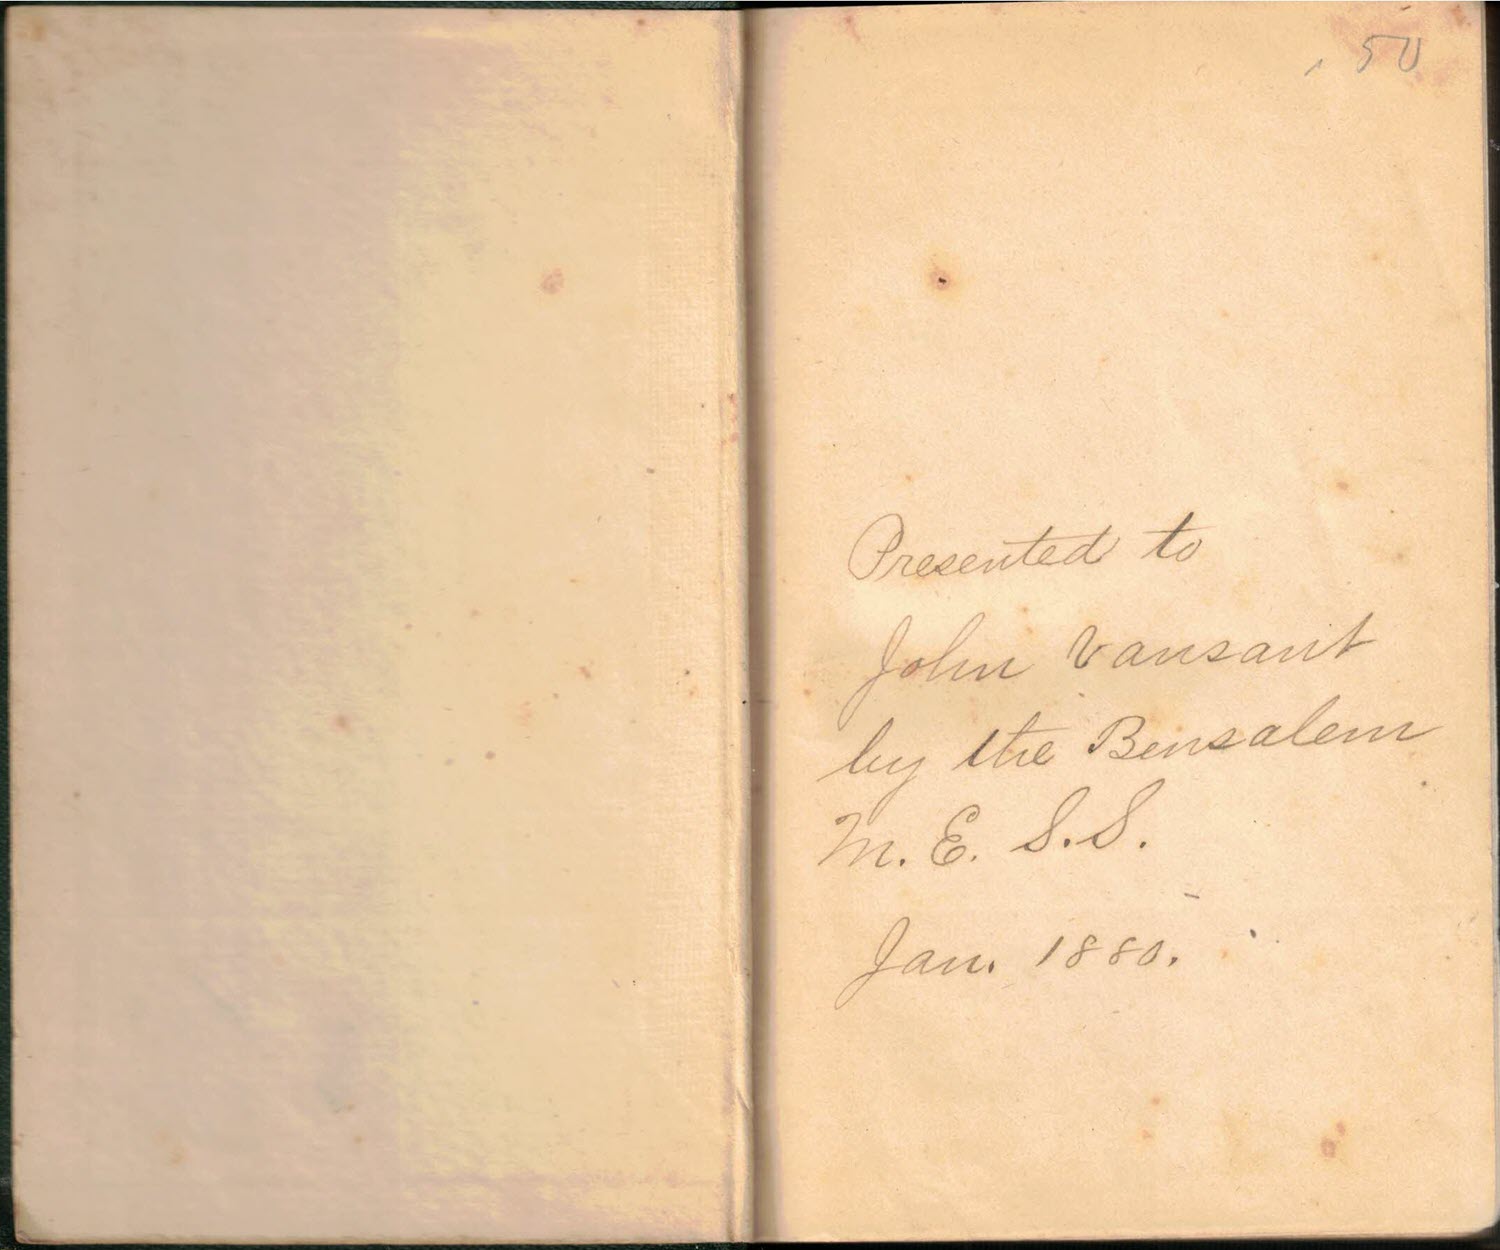 .50
Presented to
John Vansant
by the Bensalem
M. E. S. S.
Jan. 1880.